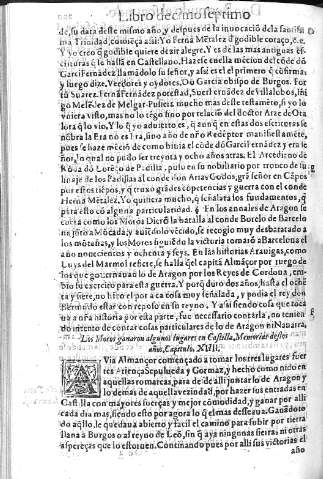 Libro decimo septimo
de, su data deste mismo año, y despues de la inuocació de la sanctissi
ma Trinidad, comiença assi: Yo Ferná Metalez d'godible coraçó, &c.
Y yo creo q̃ godible quiere dezir alegre. Y es de las mas antiguas es-
crituras q̃ se hallã en Castellano. Haze se en ella mécion del códe dõ
Garci Fernádez llamádolo su señor, y assi es el el primero q̃ cõfirma:
y luego dize, Veedores y oydores, dõ Garcia obispo de Burgos. For
tũ Suarez. Fernã Fernádez potestad, Suer Fernádez de Villalobos,
go Melédez de Melgar. Pusierá mucho mas deste testaméto, si yo lo
uuiera visto, mas no lo tégo sino por relació del doctor Arze de Ota
lora q̃ lo vio. Y lo q̃ yo aduierto es, q̃ aunq̃ en estas dos escrituras se
nóbra la Era no es Era, sino año de nr̃o Redéptor manifiestaméte,
pues se haze méció de como biuia el códe dõ Garci Fernádez y era se
ñor, lo qual no pudo ser treynta y ocho años atras. El Arcediano de
Roda dó Loréço de Padilla, puso en su nobiliario por tronco de su
linaje de los Padillas al conde dõ Arias Godos, grá señor en Cápos
por estos tiépos, y q̃ truxo grádes competencias y guerra con el conde
Ferná Métalez. Yo quisiera mucho, q̃ señalara los fundamentos, q̃
para esto ay alguna particularidad. q̃ En los annales de Aragon se
cuenta como los Moros Dieró la batalla al conde Borelo de Barcelo
na júto a Mócada: y auiédolo vécido, se recogio muy desbaratado a
los mótañas, y los Moros siguiédo la victoria tomaró a Barcelona el
año nouecientos y ochenta y seys. En las historias Arauigas, como
Luys del Marmol refiere, se halla q̃l capitã Almáçor fuego de
los que gouernauan lo de Aragon por los Reyes de Cordoua, em-
bio su exercito para esta guerra. Y porq̃ duró dos años, hasta el ochẽ
ta y siete, no hizo el por aca cosa muy señalada, y podia el rey don
Bermudo estar con reposo en su reyno. Y assi siendo cosa que toca
ua a nr̃a historia por esta parte, fue necessario contarla, no tenien
do intento de contar cosas particulares de lo de Aragon ni Nauarra.
Los Moros ganaron algunos lugares en Castilla. Memorias destos
años. Capitulo. XVII.
Via Almançor començado a tomar los tres lugares fuer
tes Atiença, Sepulueda y Gormaz, y hecho como nido en
aquellas comarcas, para desde alli juntar lo de Aragon y
lo demas de aquella vezindad, por hazer sus entradas en
Castilla con mayores fuerças y mejor comodidad, y ganar por alli
cada dia mas, siendo esto por agora lo q̃ el mas desseaua. Ganádoto
do aq̃llo, le quedaua abierto y facil el camino para subir por tierra
llana a Burgos o al reyno de Leõ, sin q̃ aya ningunas sierras, ni otras
asperezas que lo estoruen. Continuando pues por alli sus victorias el
año